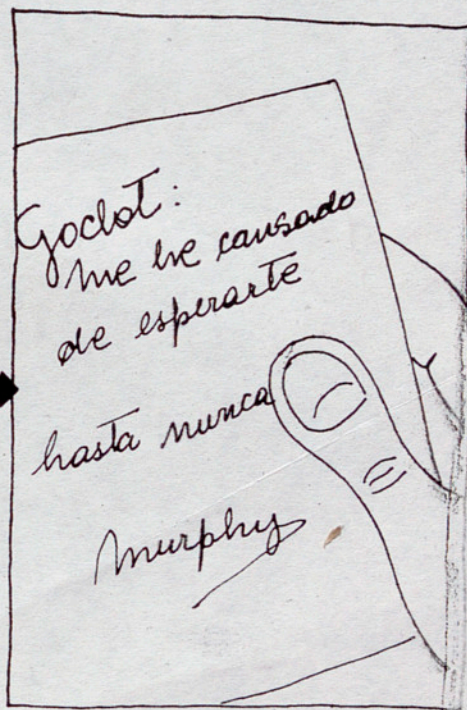 Godot:
me he cansado
de esperarte
hasta nunca
Murphy